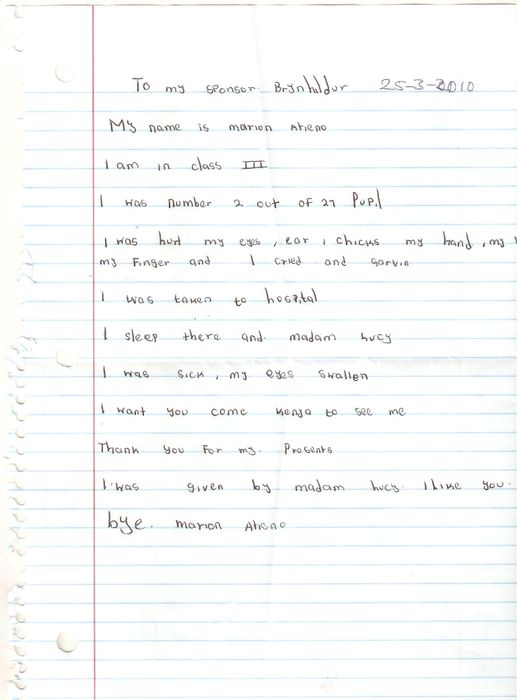 To my sponsor Brynhildur 25-3-2010
My name is marion Atieno
I am in class III
I was number 2 out of 27 Pupil
I was hurt my eyes, ear, chicks my hand, my
my Finger and I cried and Garvin
I was taken to hospital
I sleep there and madam Lucy
I was sick, my eyes swallen
I want you come kenya to see me
Thank you For my Presents
I was given by madam Lucy. I like you.
bye. marion Atieno